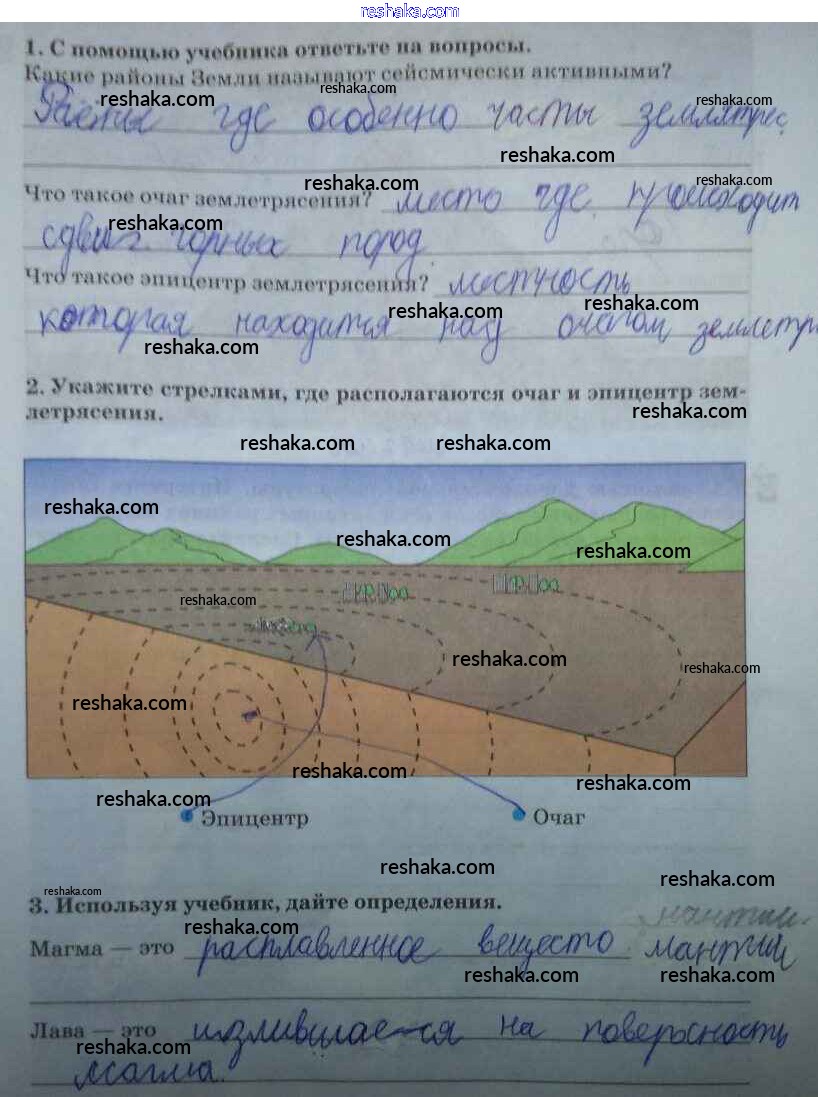 reshaka.com
1. С помощью учебника ответьте на вопросы.
Какие районы Земли называют сейсмически активными?
reshaka.com reshaka.com reshaka.com
где особенно часты землятрес
reshaka.com
Что такое очаг землетрясения? место где происходит
reshaka.com reshaka.com
reshaka.com
сдвиг горных пород
Что такое эпицентр землетрясения? местность
reshaka.com reshaka.com
которая находится над очагом землетр
reshaka.com
2. Укажите стрелками, где располагаются очаг и эпицентр зем-
летрясения.
reshaka.com
reshaka.com reshaka.com
reshaka.com
reshaka.com
reshaka.com
reshaka.com
reshaka.com
reshaka.com
reshaka.com
reshaka.com
reshaka.com
reshaka.com
Эпицентр Очаг
reshaka.com
reshaka.com
reshaka.com
3. Используя учебник, дайте определения.
reshaka.com
мантии.
Магма — это расплавленное вещесто мантии
reshaka.com reshaka.com
Лава — это излившиаеся на поверсность
reshaka.com
магма.